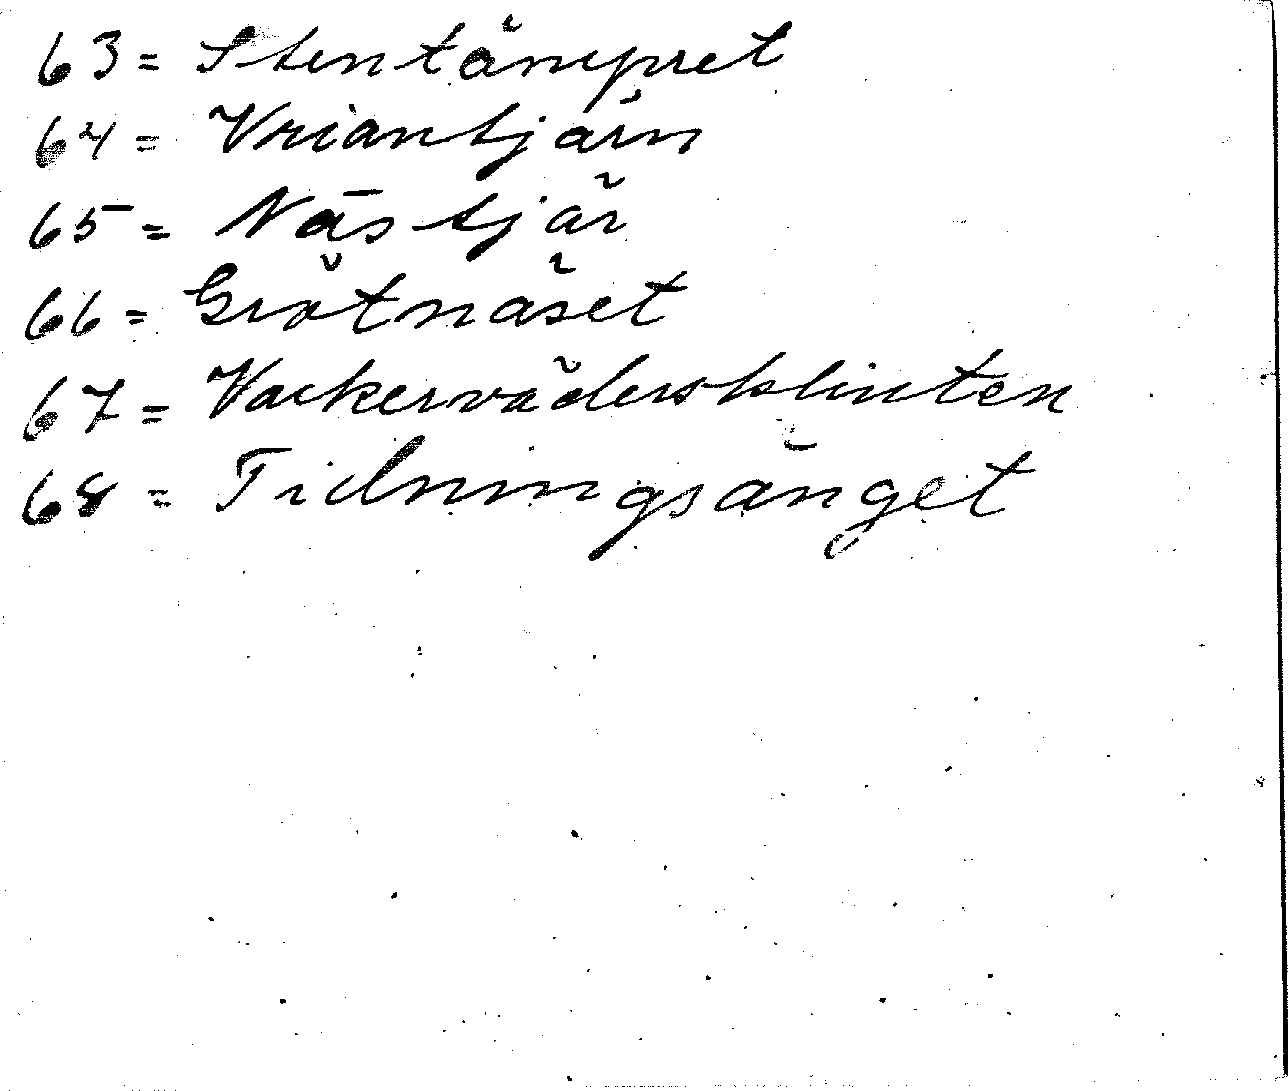 63 = Stentämpret
64 = Vriantjärn
65 = Nästjär
66 = Grötnäset
67 = Vackervädersklinten
68 = Tidningsänget